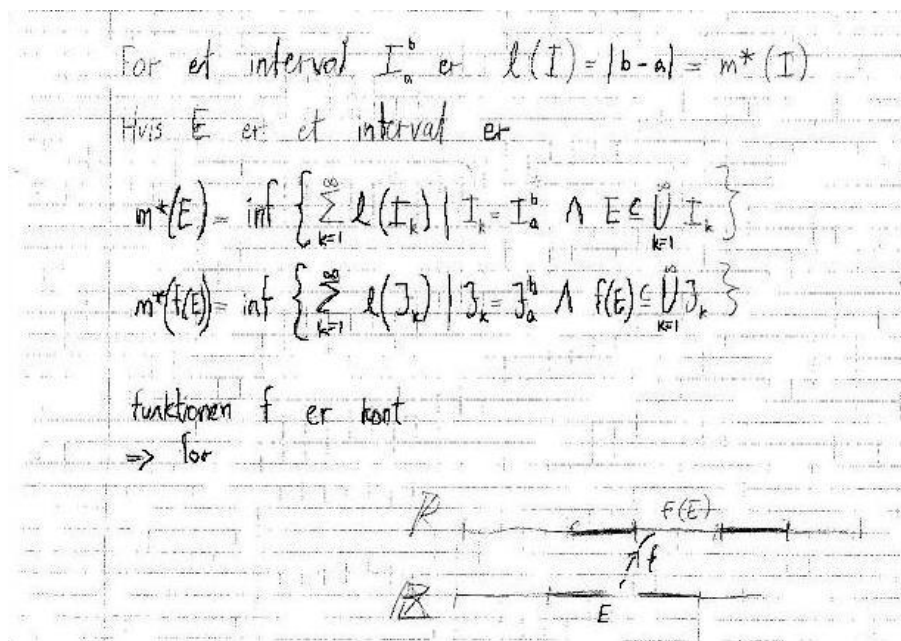 For et interval I_a^b er l(I) = |b-a| = m*(I)
Hvis E er et interval er
m*(E) = inf { ∑_{k=1}^∞ l(I_k) | I_k = I_a^b ∧ E ⊆ ⋃_{k=1}^∞ I_k }
m*(f(E)) = inf { ∑_{k=1}^∞ l(J_k) | J_k = J_a^b ∧ f(E) ⊆ ⋃_{k=1}^∞ J_k }
funktionen f er kont
=> for
f(E)
ℝ
f
ℝ
E